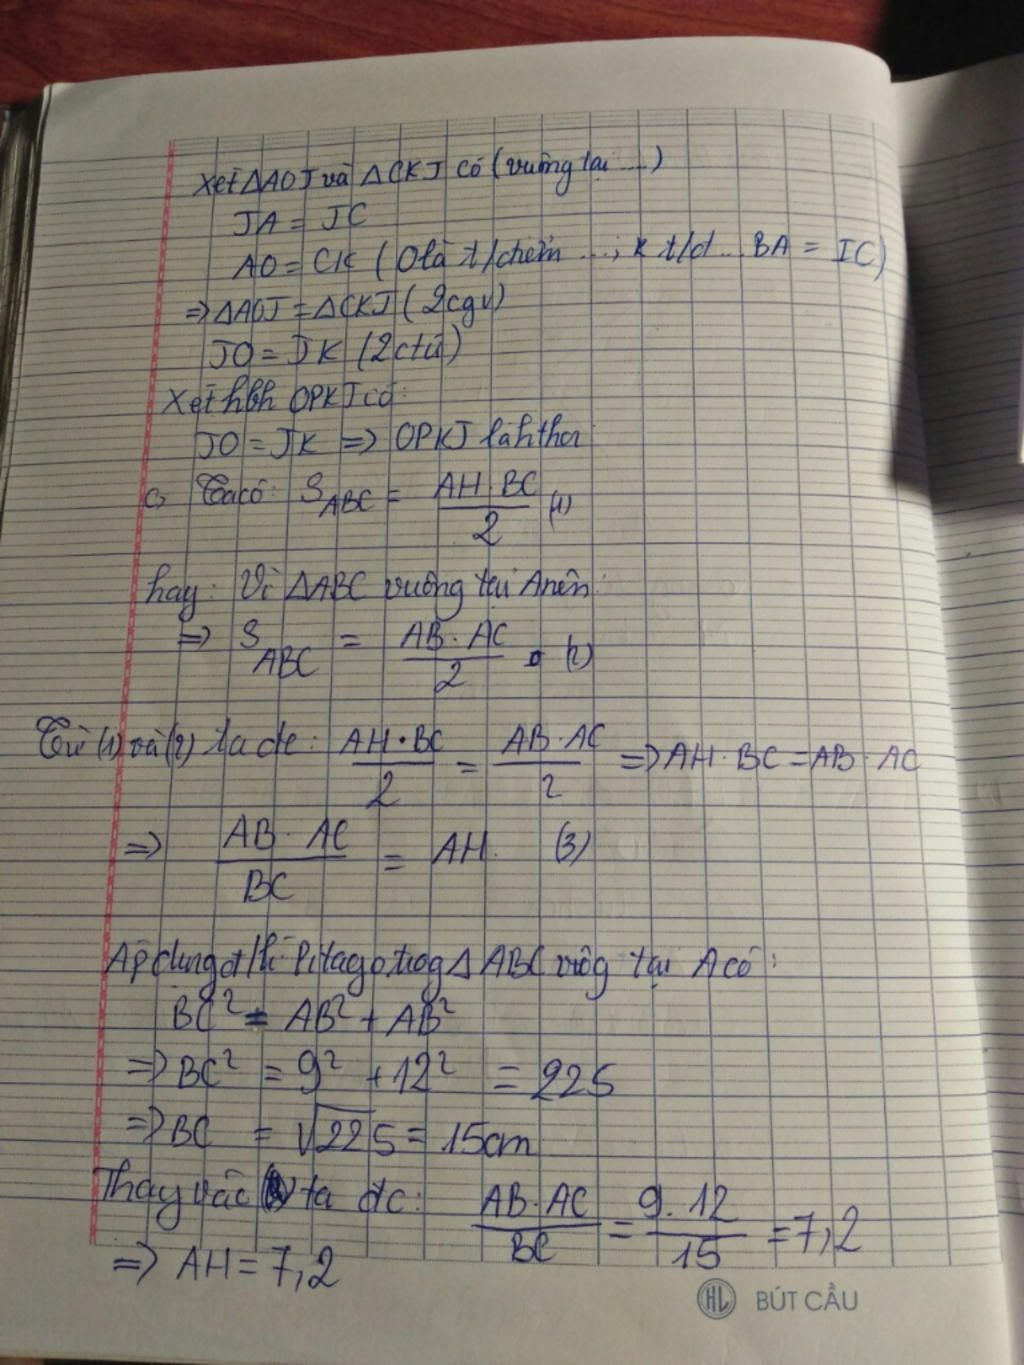 Xét ΔAOJ và ΔCKJ có (vuông tại ...)
JA = JC
AO = CK (O là t/điểm ..., K t/đ ... BA = IC)
=> ΔAOJ = ΔCKJ (2cgv)
JO = JK (2ctư)
Xét hbh OPKJ có:
JO = JK => OPKJ là hthoi
c, Ta có: S_ABC = AH · BC / 2 (1)
hay: Vì ΔABC vuông tại A nên:
=> S_ABC = AB · AC / 2 (2)
Từ (1) và (2) ta đc: AH · BC / 2 = AB · AC / 2 => AH · BC = AB · AC
=> AB · AC / BC = AH. (3)
Áp dụng đ/lí Pitago trog Δ ABC vuôg tại A có:
BC² = AB² + AB²
=> BC² = 9² + 12² = 225
=> BC = √225 = 15cm
Thay vào ta đc: AB · AC / BC = 9 . 12 / 15 = 7,2
=> AH = 7,2
HL BÚT CẦU